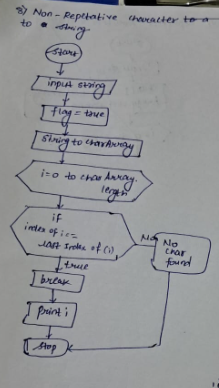 8) Non-Repetative character to a
to a string
Start
input string
flag = true
String to charArray
i=0 to charArray.
length
if
index of i ==
last Index of (i)
No
No
char
found
true
break
print i
stop